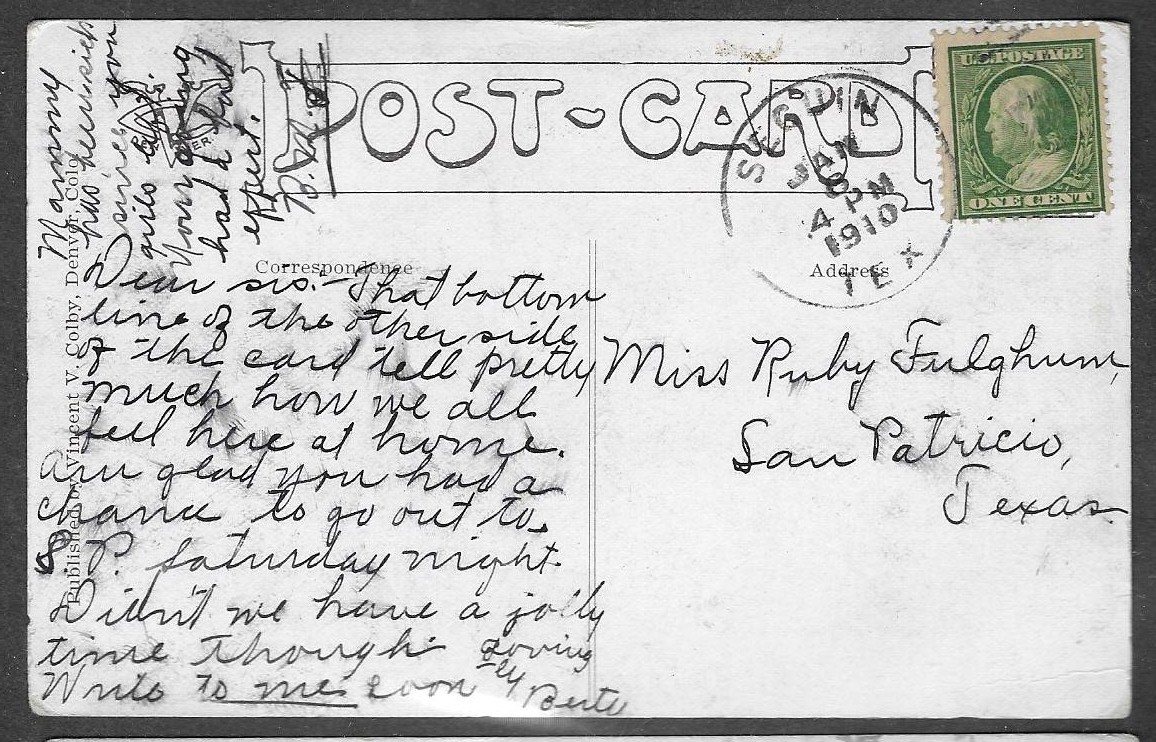 POST-CARD
U.S. POSTAGE
ONE CENT
SEGUIN
JAN
4 PM
1910
TEX
Correspondence
Address
Published by Vincent V. Colby, Denver, Colo.
Dear sis:- That bottom
line of the other side
of the card tell pretty
much how we all
feel here at home.
Am glad you had a
chance to go out to
S. P. Saturday night.
Didn't we have a jolly
time though.
Write to me soon
Loving
ly
Berta
Mammy
has been sick
since you
girls
Your
had a
effect.
Miss Ruby Fulghum,
San Patricio,
Texas.